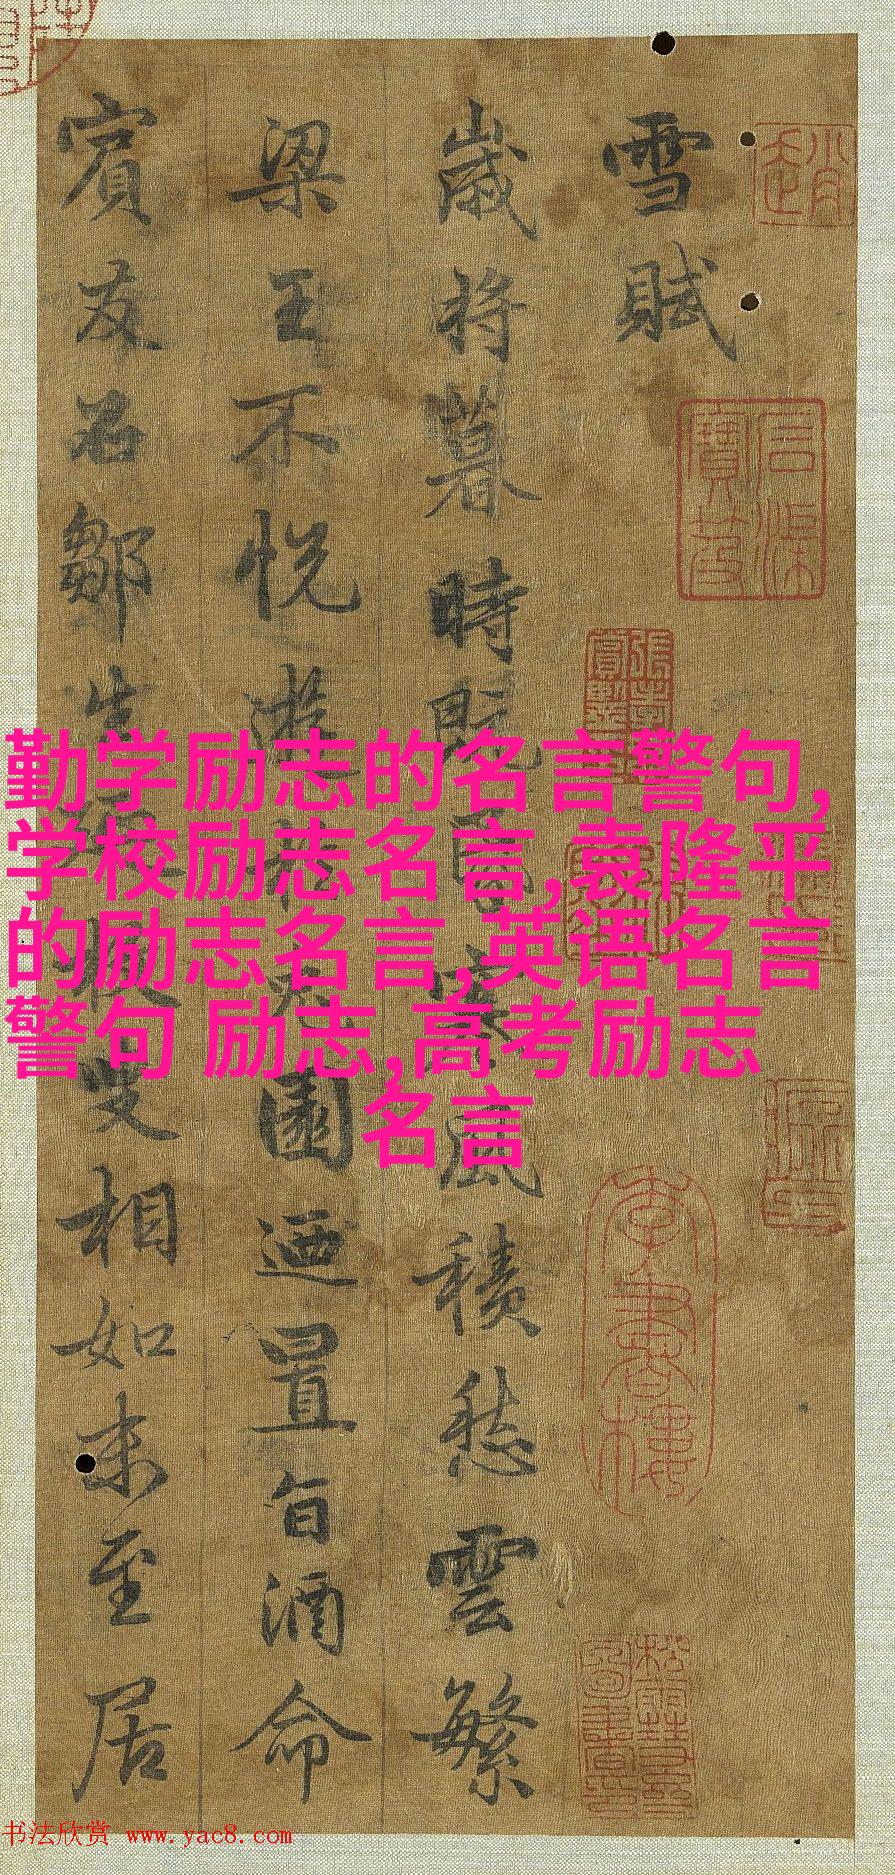 雪賦
歲将暮時既昏寒風積愁雲繁
梁王不悦游於兔園迺置旨酒命
賓友召鄒生延枚叟相如末至居
勤学励志的名言警句,
学校励志名言,袁隆平
的励志名言,英语名言
警句 励志,高考励志
名言
书法欣赏 www.yac8.com